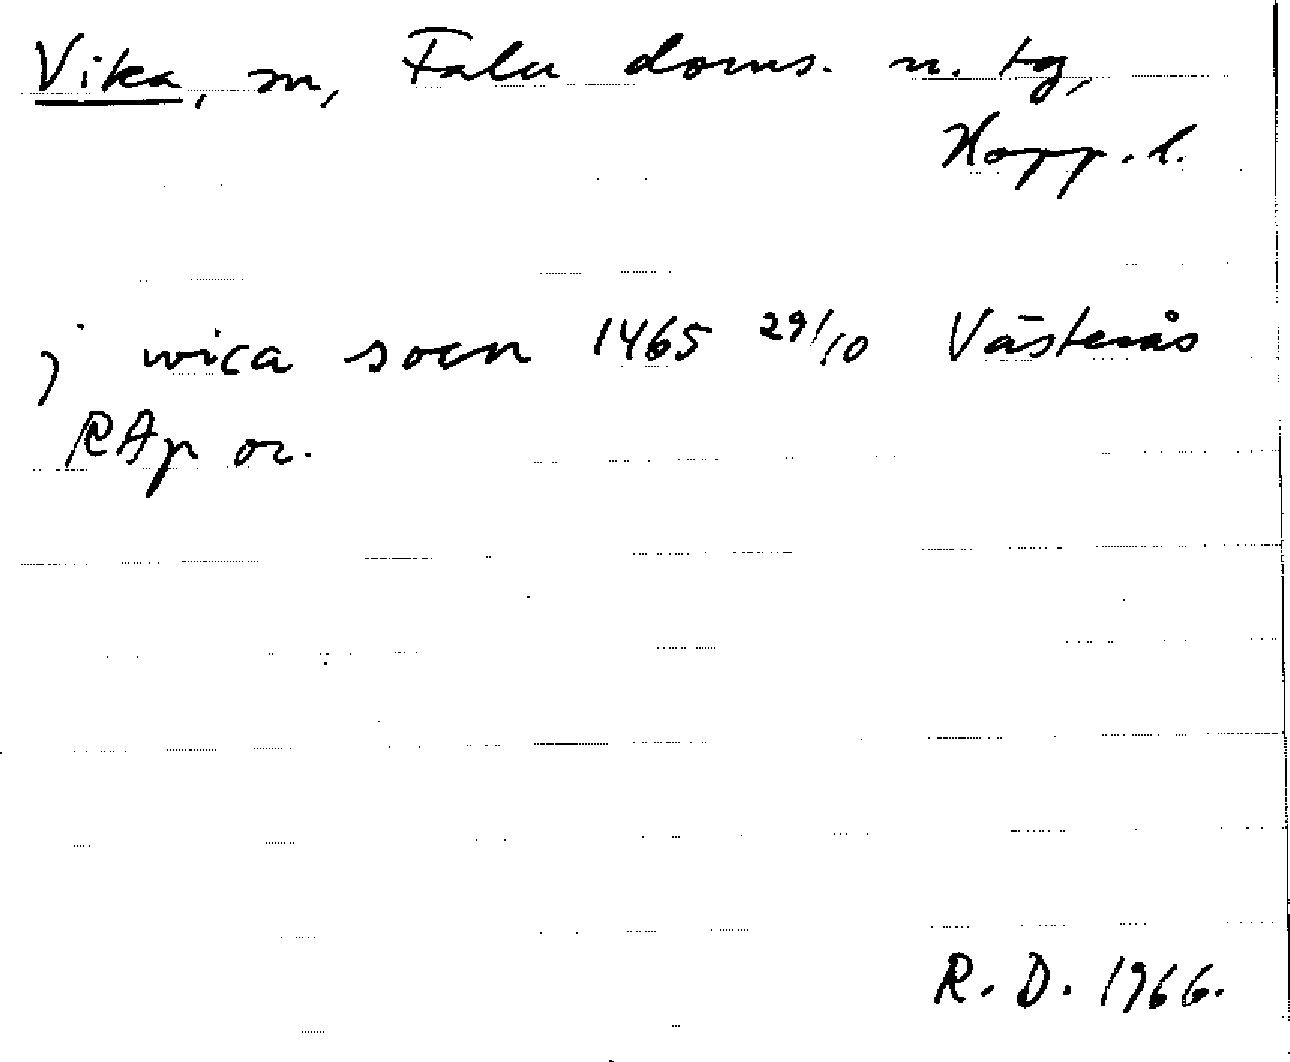 Vika, sn, Falu doms. n. tg,
Kopp. l.
j wica socn 1465 29/10 Västerås
RAp or.
R. D. 1966.